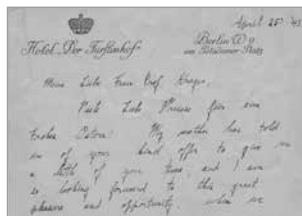 April 25th '43
Hotel "Der Fürstenhof"
Berlin W 9
am Potsdamer Platz
Meine Liebe Frau Prof.
Viele Liebe für ein
Frohes Ostern! My mother has told
me of your kind offer to give me
a little of your time, and I am
so looking forward to this great
pleasure and opportunity. when we